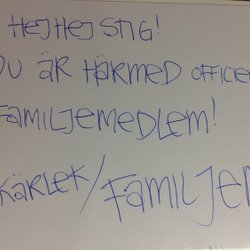 HEJ HEJ STIG!
DU ÄR HÄRMED OFFICE
FAMILJEMEDLEM!
KÄRLEK/FAMILJEN